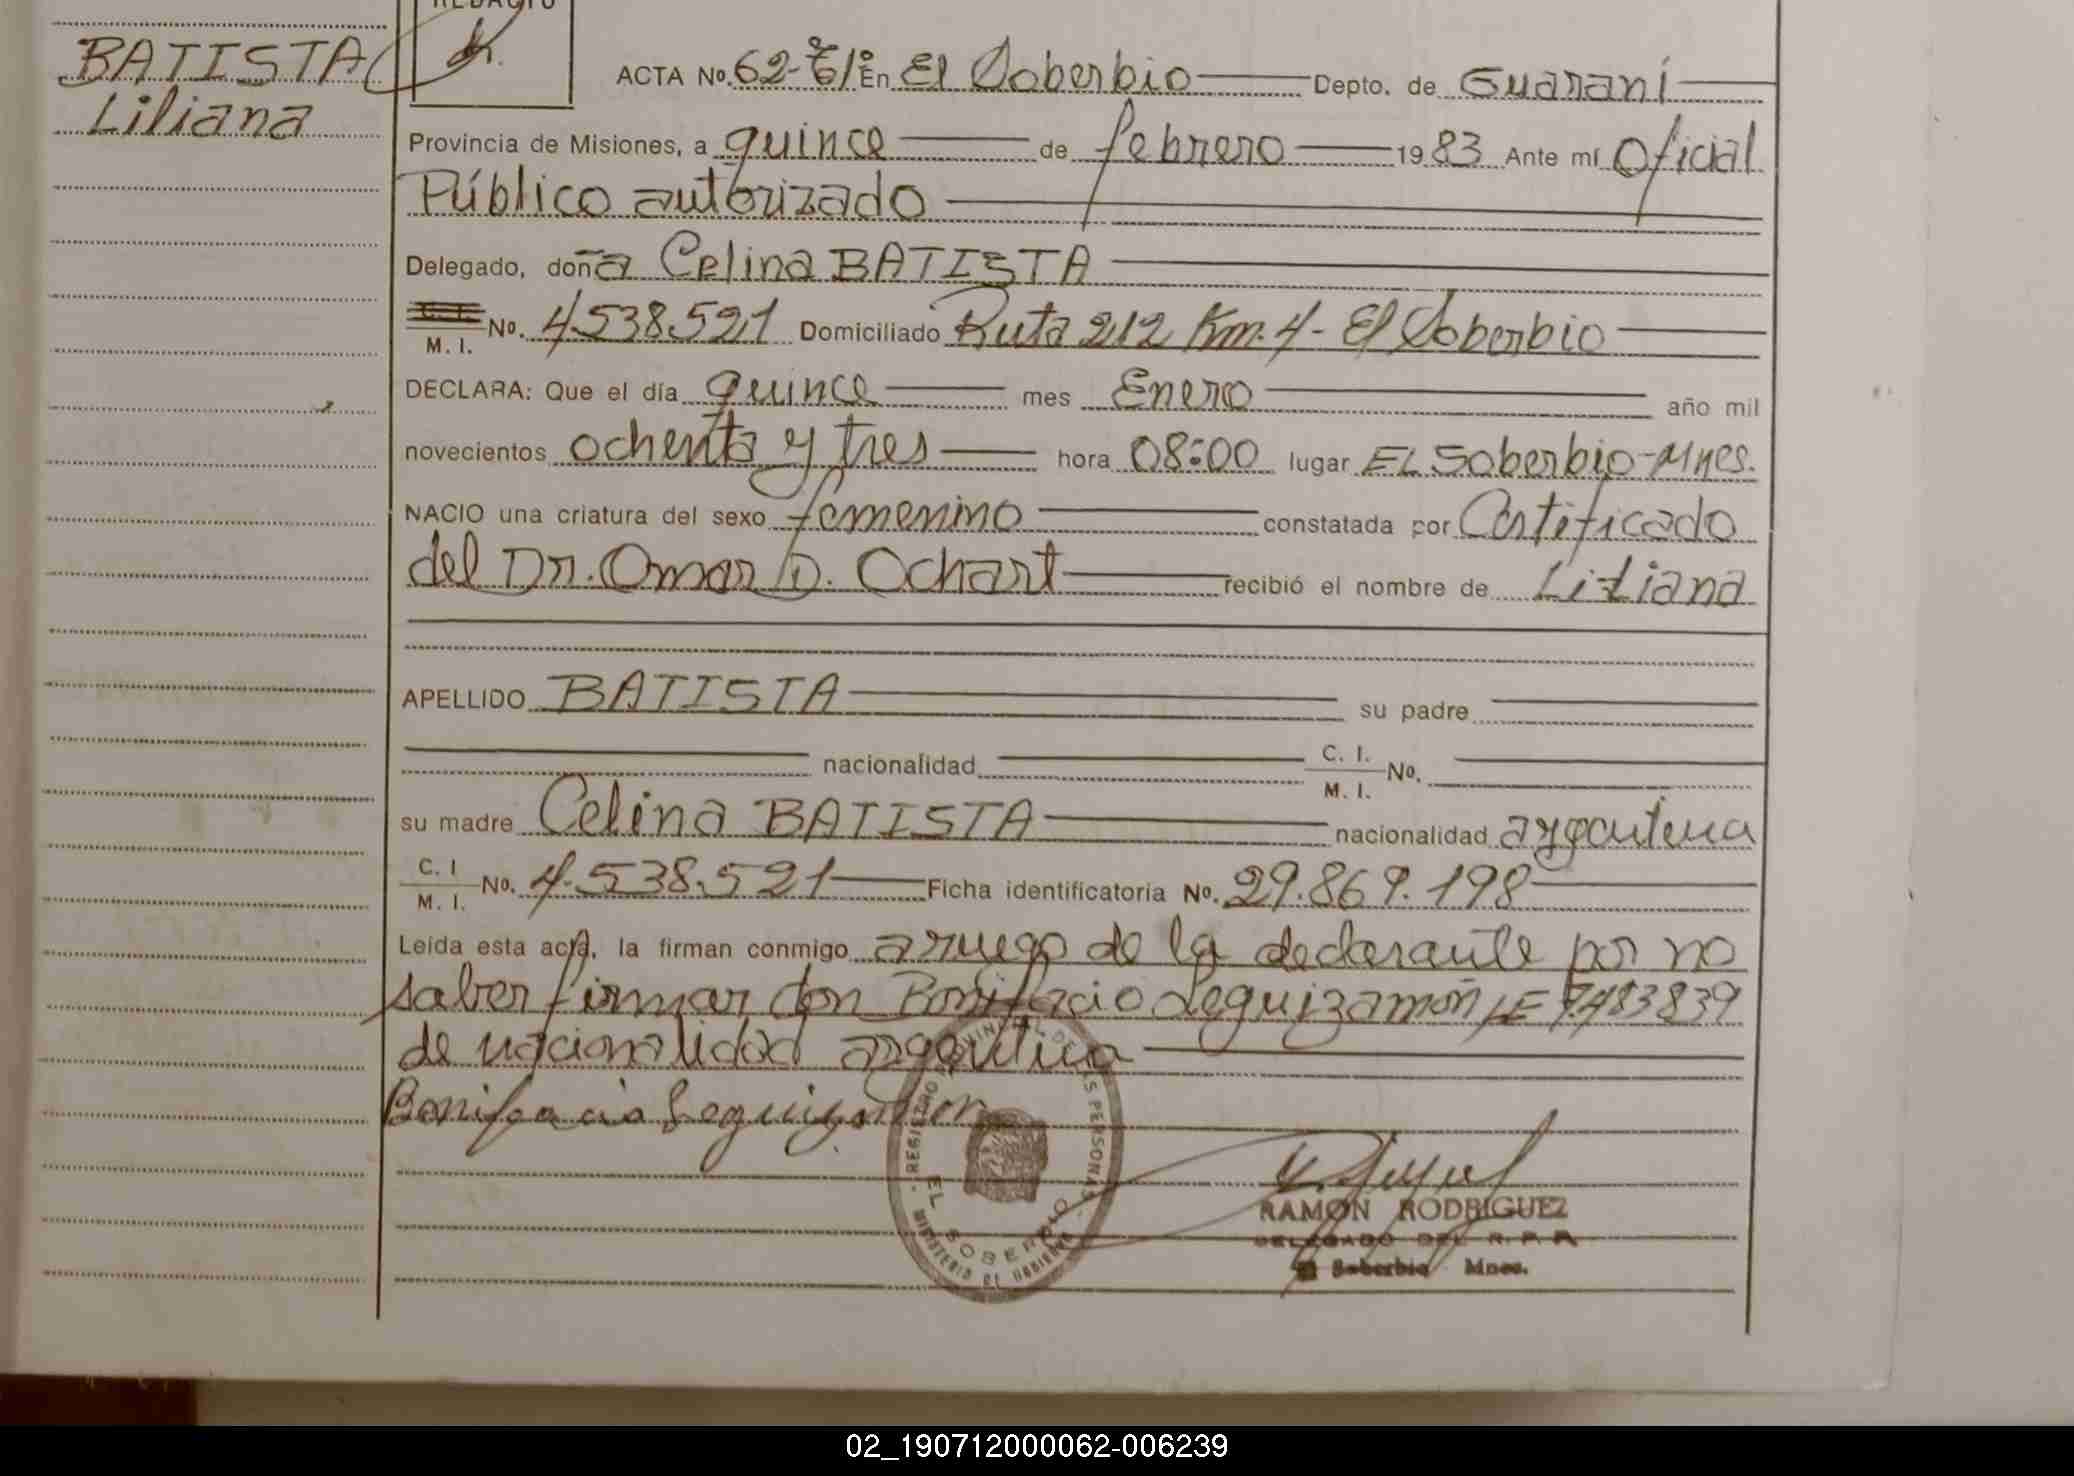 REDACTO
BATISTA
Liliana
ACTA No. 62- Tº 1º En El Soberbio Depto. de Guaraní
Provincia de Misiones, a quince de febrero 1983 Ante mí Oficial
Público autorizado
Delegado, doña Celina BATISTA
C. I. M. I. No. 4.538.521 Domiciliado Ruta 212 Km. 4- El Soberbio
DECLARA: Que el día quince mes Enero año mil
novecientos ochenta y tres hora 08:00 lugar EL Soberbio-Mnes.
NACIO una criatura del sexo femenino constatada por Certificado
del Dr. Omar D. Ochart recibió el nombre de Liliana
APELLIDO BATISTA su padre
nacionalidad C. I. M. I. No.
su madre Celina BATISTA nacionalidad argentina
C. I M. I. No. 4.538.521 Ficha identificatoria No. 29.869.198
Leída esta acta, la firman conmigo a ruego de la declarante por no
saber firmar don Bonifacio Leguizamón LE 7.483839
de nacionalidad argentina
Bonifacio Leguizamon
REGISTRO PROVINCIAL DE LAS PERSONAS
EL SOBERBIO
MINISTERIO DE GOBIERNO
RAMON RODRIGUEZ
DELEGADO DEL R. P. P.
El Soberbio Mnes.
02_190712000062-006239